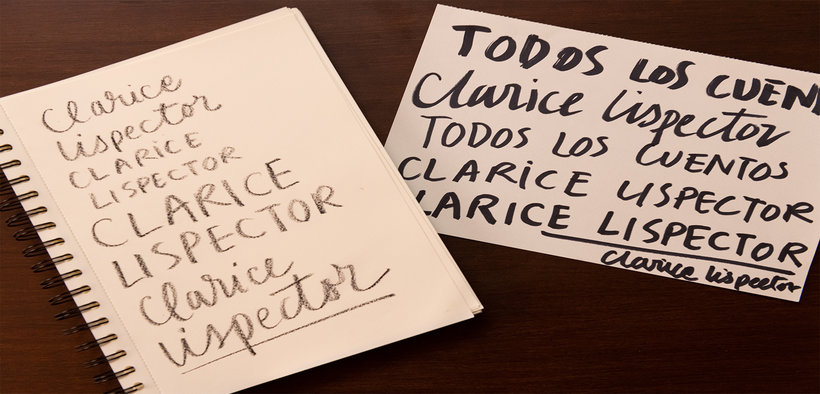 Clarice
Lispector
CLARICE
LISPECTOR
CLARICE
LISPECTOR
Clarice
Lispector
TODOS LOS CUEN
Clarice Lispector
TODOS LOS CUENTOS
CLARiCE LISPECTOR
LARICE LISPECTOR
Clarice Lispector